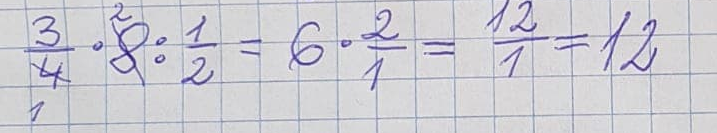 3/4 · 8 : 1/2 = 6 · 2/1 = 12/1 = 12
2
1